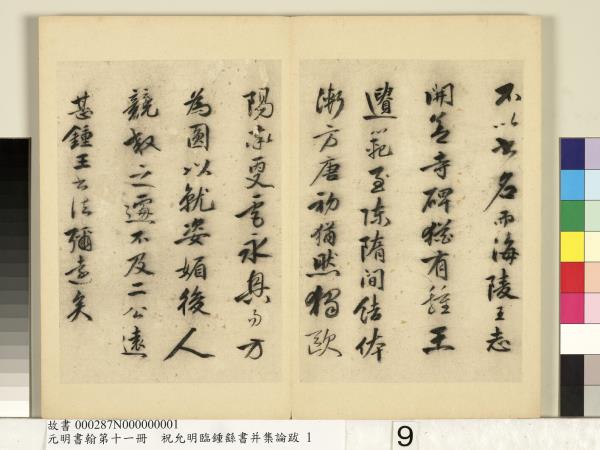 不以書名而海陵王志
開善寺碑猶有鍾王
遺範至陳隋間結体
漸方唐初猶爾獨歐
陽率更虞永興易方
為圓以就姿媚後人
競效之遽不及二公遠
甚鍾王書法彌遠矣
故書 000287N000000001
元明書翰第十一冊 祝允明臨鍾繇書并集論跋 1
9